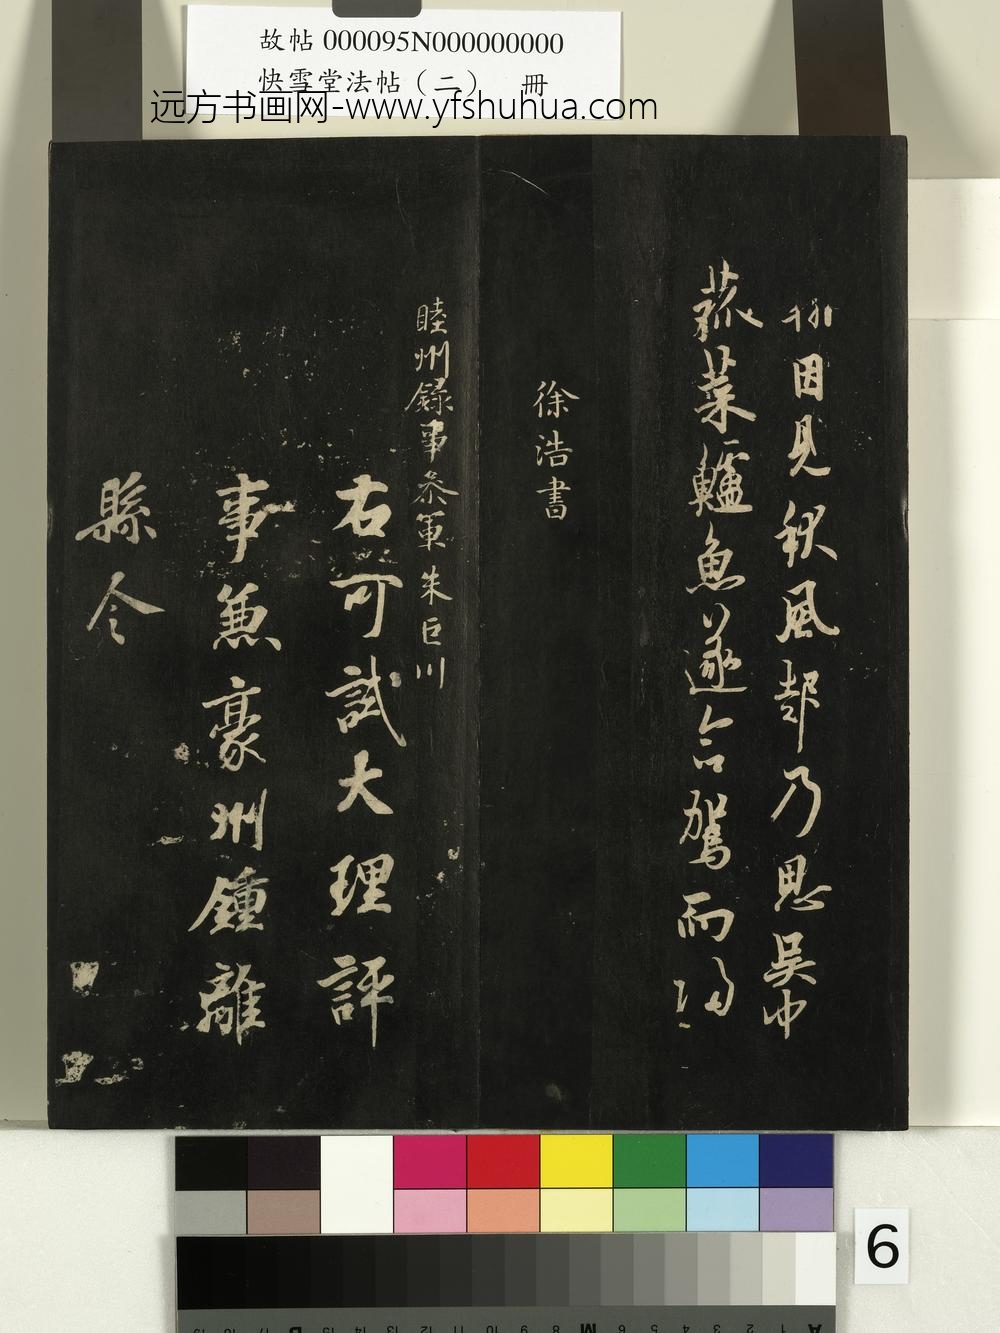 故帖 000095N000000000
快雪堂法帖（二） 冊
远方书画网-www.yfshuhua.com
因見秋風起乃思吳中
菰菜鱸魚遂命駕而歸
徐浩書
睦州錄事參軍朱巨川
右可試大理評
事兼豪州鍾離
縣令
6